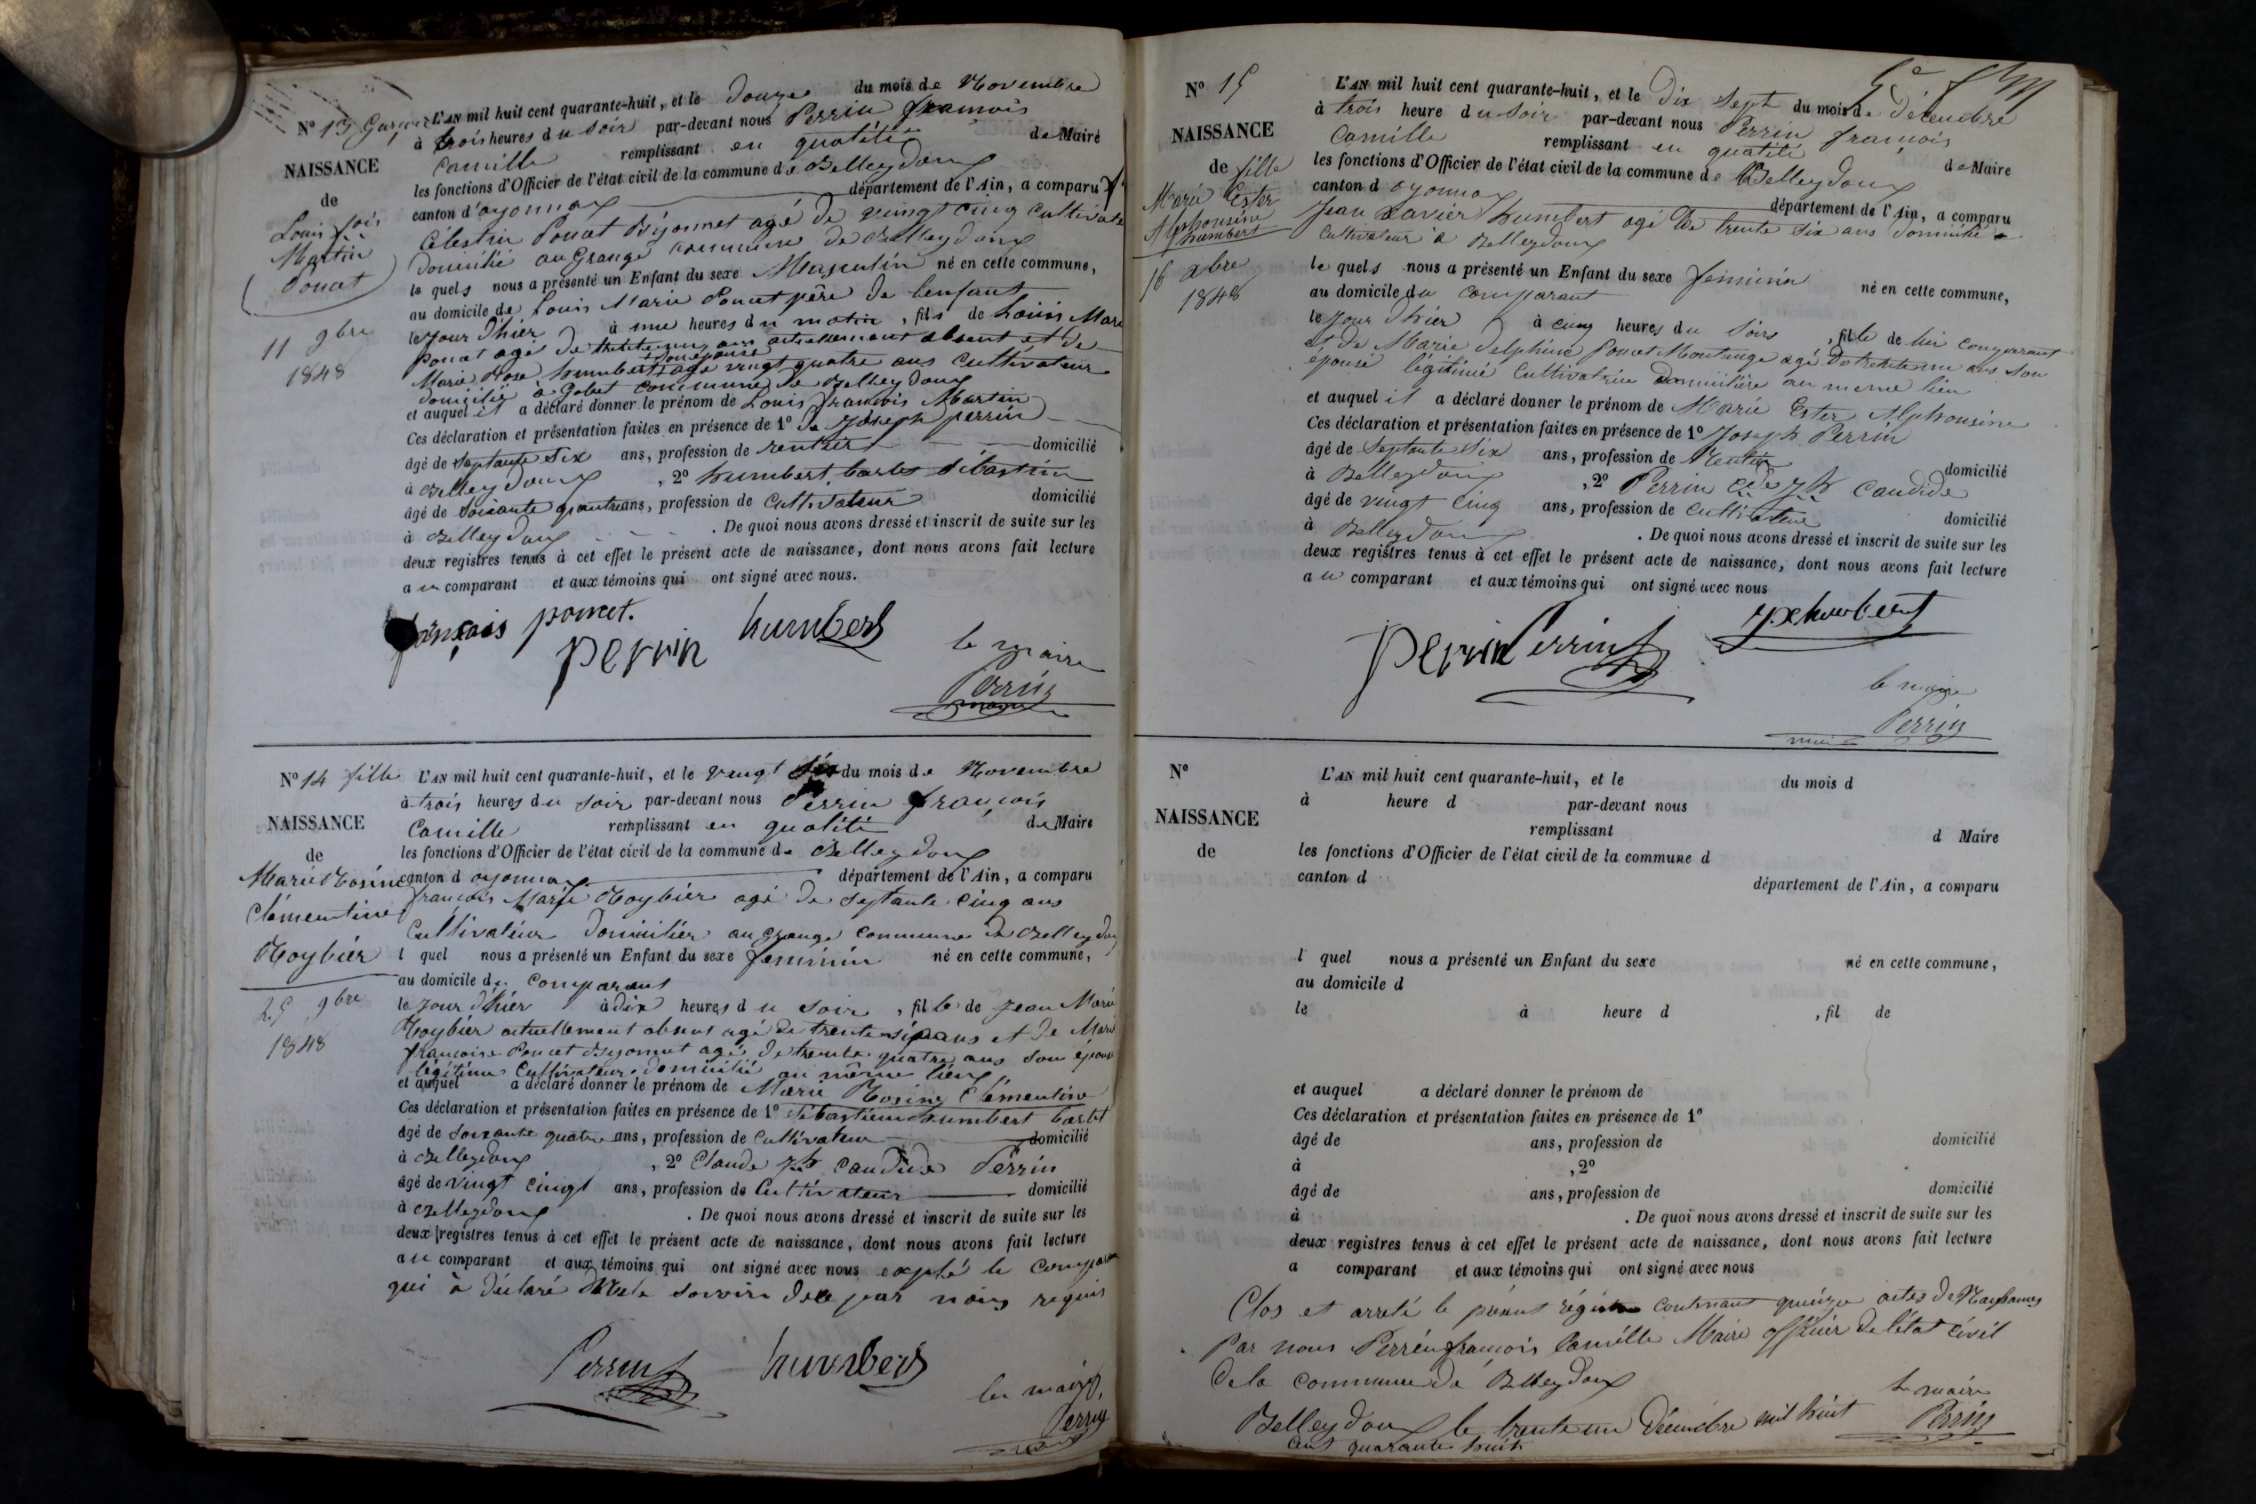 N° 13 Garçon
NAISSANCE
de
Louis fois
Martin
Poncet
11 9bre
1848
L'AN mil huit cent quarante-huit, et le douze du mois de Novembre
à trois heures du soir par-devant nous Perrin françois
Camille remplissant en qualité de Maire
les fonctions d'Officier de l'état civil de la commune de Belleydoux
canton d'oyonnax département de l'Ain, a comparu
Célestin Poncet Bÿonnet agé de vingt cinq cultivateur
domicilié au Grange commune de Belleydoux
le quels nous a présenté un Enfant du sexe Masculin né en cette commune,
au domicile de Louis Marie Poncet père de lenfant
le Jour D'hier à une heures du matin, fils de Louis Marie
Poncet agé de trente un ans actuellement absent et de
Marie Rose humbert son épouse agé vingt quatre ans Cultivateur
domicilié à Gobet commune de Belleydoux
et auquel il a déclaré donner le prénom de Louis françois Martin
Ces déclaration et présentation faites en présence de 1° De Joseph perrin
âgé de Septante Six ans, profession de rentier domicilié
à Belleydoux, 2° humbert barlet Sébastin
âgé de Soixante quatre ans, profession de Cultivateur domicilié
à Belleydoux. De quoi nous avons dressé et inscrit de suite sur les
deux registres tenus à cet effet le présent acte de naissance, dont nous avons fait lecture
au comparant et aux témoins qui ont signé avec nous.
françois poncet.
perrin humbert
le maire
Perrin
N° 14 fille
NAISSANCE
de
Marie Rosine
Clémentine
Roybier
25 9bre
1848
L'AN mil huit cent quarante-huit, et le vingt Six du mois de Novembre
à trois heures du soir par-devant nous Perrin françois
Camille remplissant en qualité de Maire
les fonctions d'Officier de l'état civil de la commune de Belleydoux
canton d oyonnax département de l'Ain, a comparu
françois Marie Roybier agé de Septante cinq ans
Cultivateur Domicilier au Grange commune de Belleydoux
l quel nous a présenté un Enfant du sexe feminin né en cette commune,
au domicile du comparant
le Jour d'hier à dix heures du soir, fille de Jean Marie
Roybier actuellement absent agé de trente six ans et de Marie
françoise Poncet Byonnet agé de trente quatre ans son épouse
légitime Cultivateur domicilié au même lieu
et auquel a déclaré donner le prénom de Marie Rosine Clémentine
Ces déclaration et présentation faites en présence de 1° Sébastien humbert barlet
âgé de Soixante quatre ans, profession de Cultivateur domicilié
à Belleydoux, 2° Claude Jh Candide Perrin
âgé de vingt cinq ans, profession de Cultivateur domicilié
à Belleydoux. De quoi nous avons dressé et inscrit de suite sur les
deux registres tenus à cet effet le présent acte de naissance, dont nous avons fait lecture
au comparant et aux témoins qui ont signé avec nous excepté le comparant
qui à déclaré ne le savoir de ce par nous requis
Perrin humbert
le maire
Perrin
N° 15
NAISSANCE
de fille
Marie Ester
Alphonsine
humbert
16 Xbre
1848
L'AN mil huit cent quarante-huit, et le Dix Sept du mois de Décembre
à trois heure du Soir par-devant nous Perrin françois
Camille remplissant en qualité de Maire
les fonctions d'Officier de l'état civil de la commune de Belleydoux
canton d oyonnax département de l'Ain, a comparu
Jean Xavier humbert agé de trente Six ans domicilié
Cultivateur à Belleydoux
le quels nous a présenté un Enfant du sexe feminin né en cette commune,
au domicile du comparant
le Jour d'hier à cinq heures du Soirs, fille de lui comparant
et de Marie delphine Poncet Montange agé de trente un ans Son
épouse légitime Cultivatrice domicilière au meme lieu
et auquel il a déclaré donner le prénom de Marie Ester Alphonsine
Ces déclaration et présentation faites en présence de 1° Joseph Perrin
âgé de Septante Six ans, profession de Rentier domicilié
à Belleydoux, 2° Perrin cde Jh Candide
âgé de vingt cinq ans, profession de Cultivateur domicilié
à Belleydoux. De quoi nous avons dressé et inscrit de suite sur les
deux registres tenus à cet effet le présent acte de naissance, dont nous avons fait lecture
au comparant et aux témoins qui ont signé avec nous
perrin Perrin jxhumbert
le maire
Perrin
N°
NAISSANCE
de
L'AN mil huit cent quarante-huit, et le du mois d
à heure d par-devant nous
remplissant d Maire
les fonctions d'Officier de l'état civil de la commune d
canton d département de l'Ain, a comparu
l quel nous a présenté un Enfant du sexe né en cette commune,
au domicile d
le à heure d, fil de
et auquel a déclaré donner le prénom de
Ces déclaration et présentation faites en présence de 1°
âgé de ans, profession de domicilié
à, 2°
âgé de ans, profession de domicilié
à. De quoi nous avons dressé et inscrit de suite sur les
deux registres tenus à cet effet le présent acte de naissance, dont nous avons fait lecture
a comparant et aux témoins qui ont signé avec nous
Clos et arreté le présent régistre contenant quinze actes de Naissances
Par nous Perrin françois Camille Maire officier de l'état civil
De la commune de Belleydoux
Belleydoux le trente un Décembre mil huit
cent quarante huit
le maire
Perrin